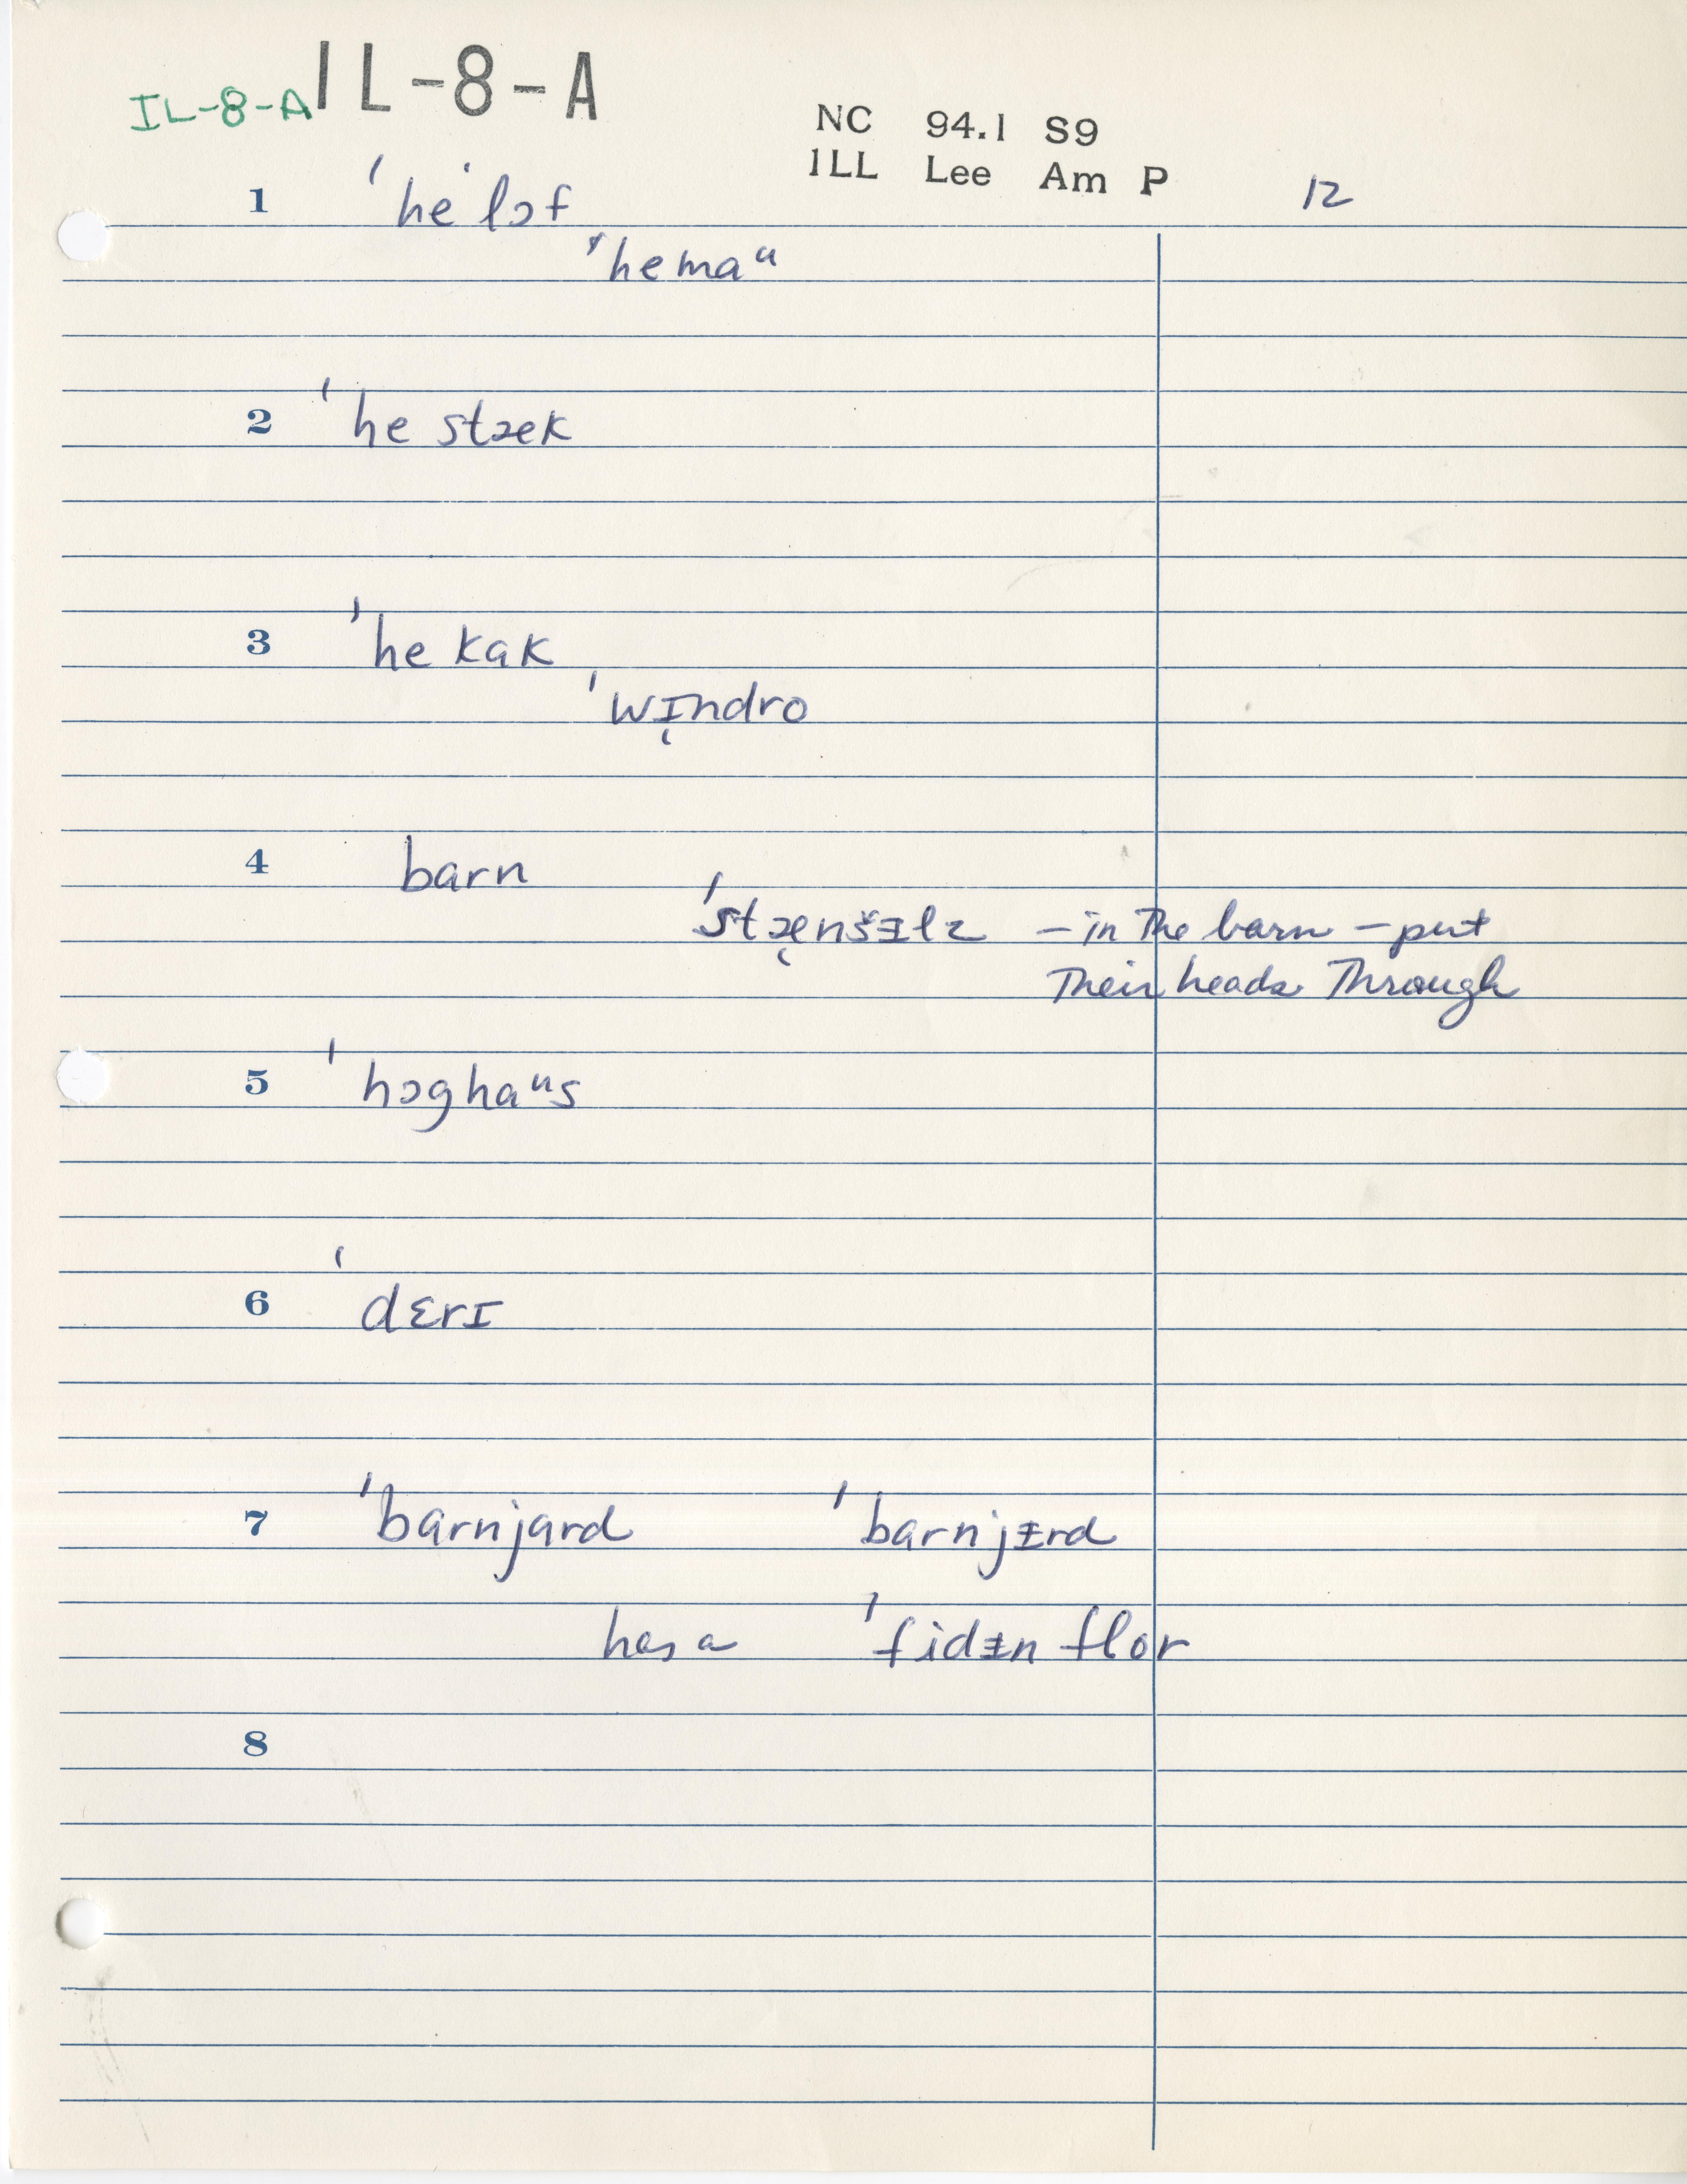 IL-8-A IL-8-A
NC 94.1 S9
ILL Lee Am P 12
1 ˈheˈlɔf
ˈhemaᵘ
2 ˈhe stæk
3 ˈhe kak
ˈwɪ̨ndro
4 barn
ˈstæ̨nšɨlz – in The barn – put
Their heads Through
5 ˈhɔghaᵘs
6 ˈdɛrɪ
7 ˈbarnjard ˈbarnjɨrd
has a ˈfidɨn flor
8